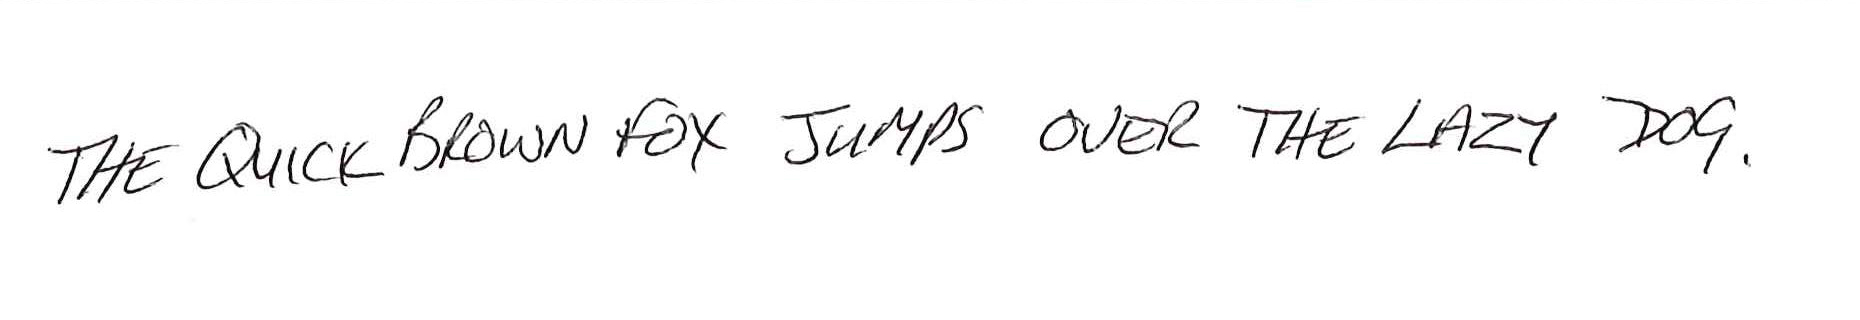 THE QUICK BROWN FOX JUMPS OVER THE LAZY DOG.